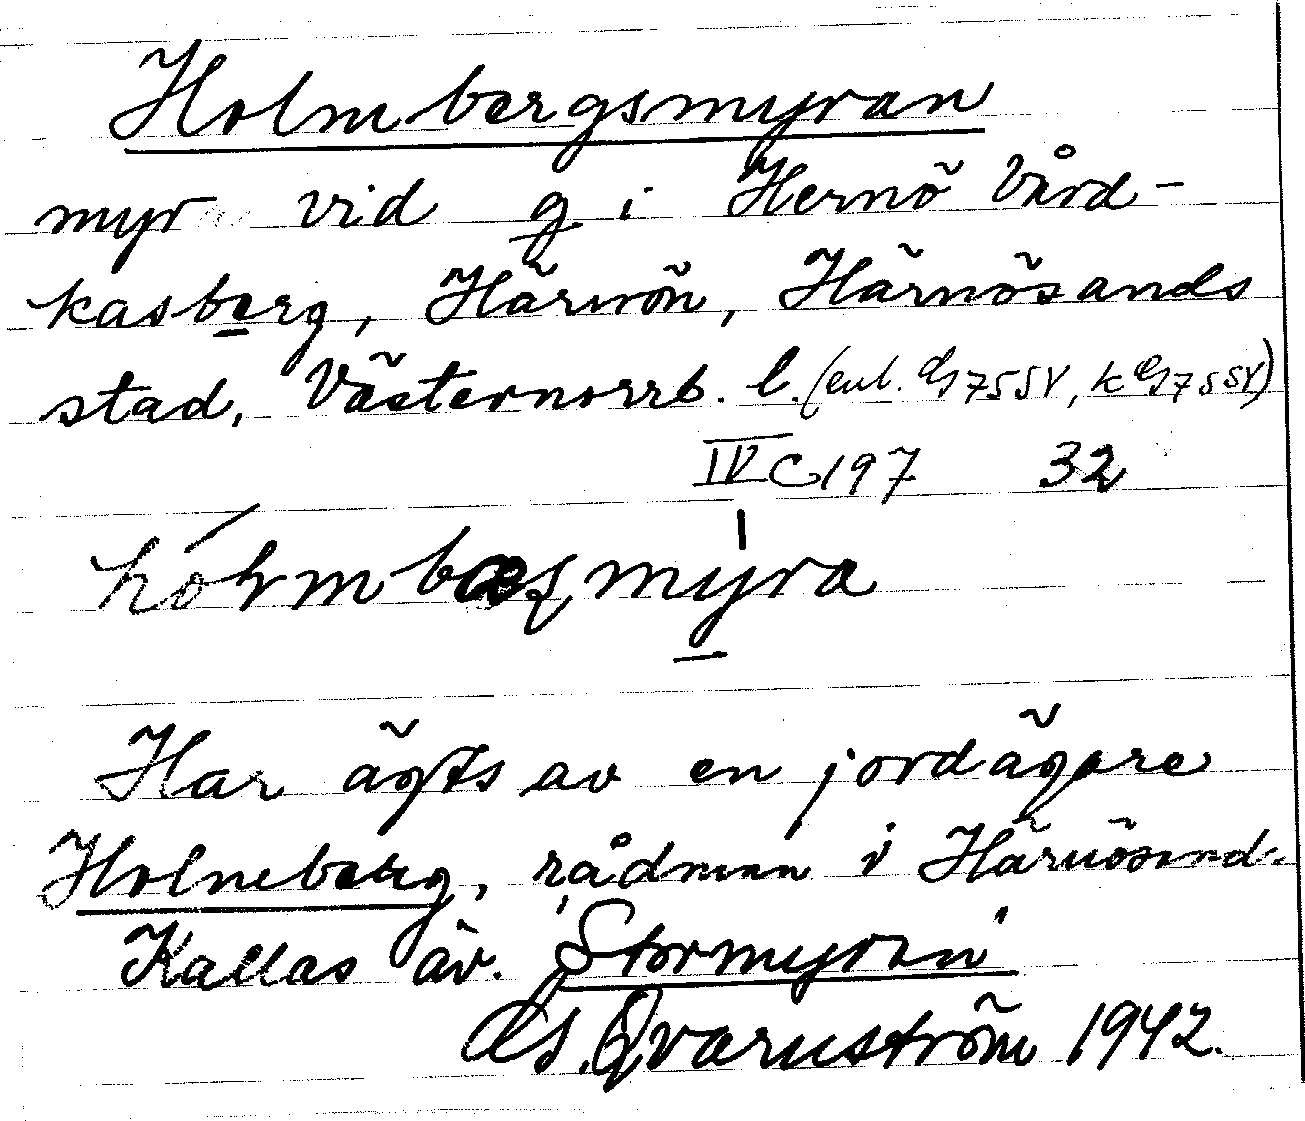 Holmbergsmyran
myr vid g i Hernö Vård-
kasberg, Härnön, Härnösands
stad, Västernorrb. l. (enl.
IV C 197 32
hólmbæsmýra
Har ägts av en jordägare
Holmeberg, rådman i Härnösand.
Kallas äv. "Stormyran"
Qvarnström 1942.